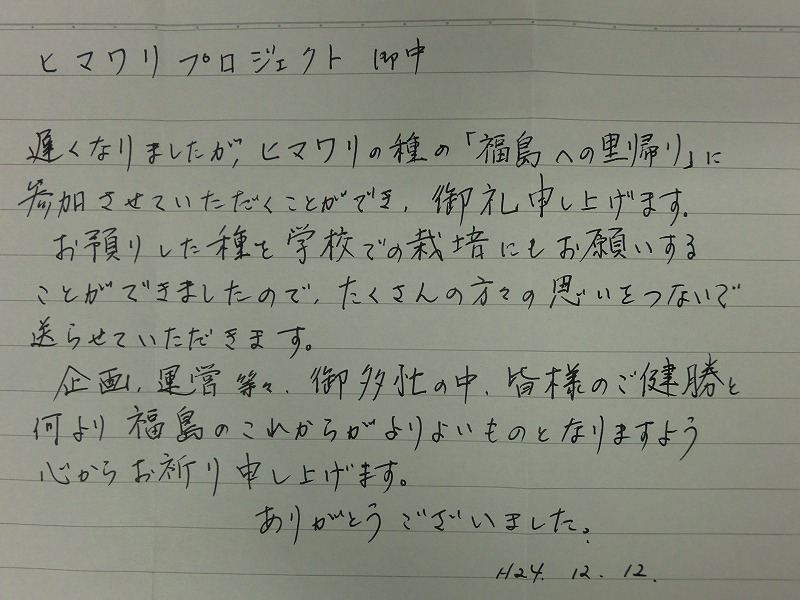 ヒマワリプロジェクト 御中
遅くなりましたが、ヒマワリの種の「福島への里帰り」に
参加させていただくことができ、御礼申し上げます。
お預りした種を学校での栽培にもお願いする
ことができましたので、たくさんの方々の思いをつないで
送らせていただきます。
企画、運営等々、御多忙の中、皆様のご健勝と
何より福島のこれからがよりよいものとなりますよう
心からお祈り申し上げます。
ありがとうございました。
H24. 12. 12.